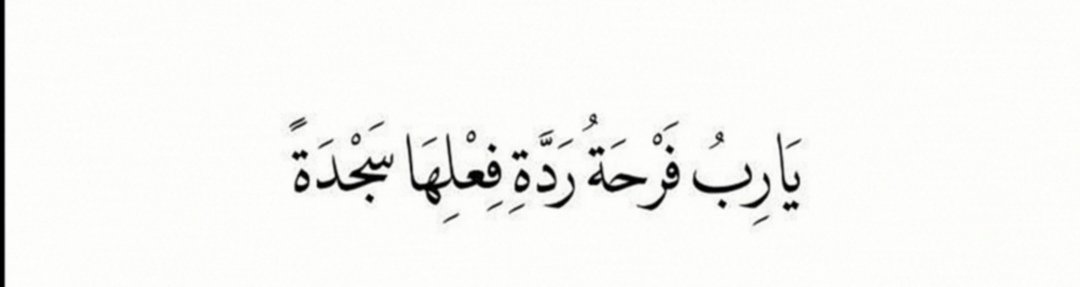 يَارِبُ فَرْحَةُ رَدَّةِ فِعْلِهَا سَجْدَةً